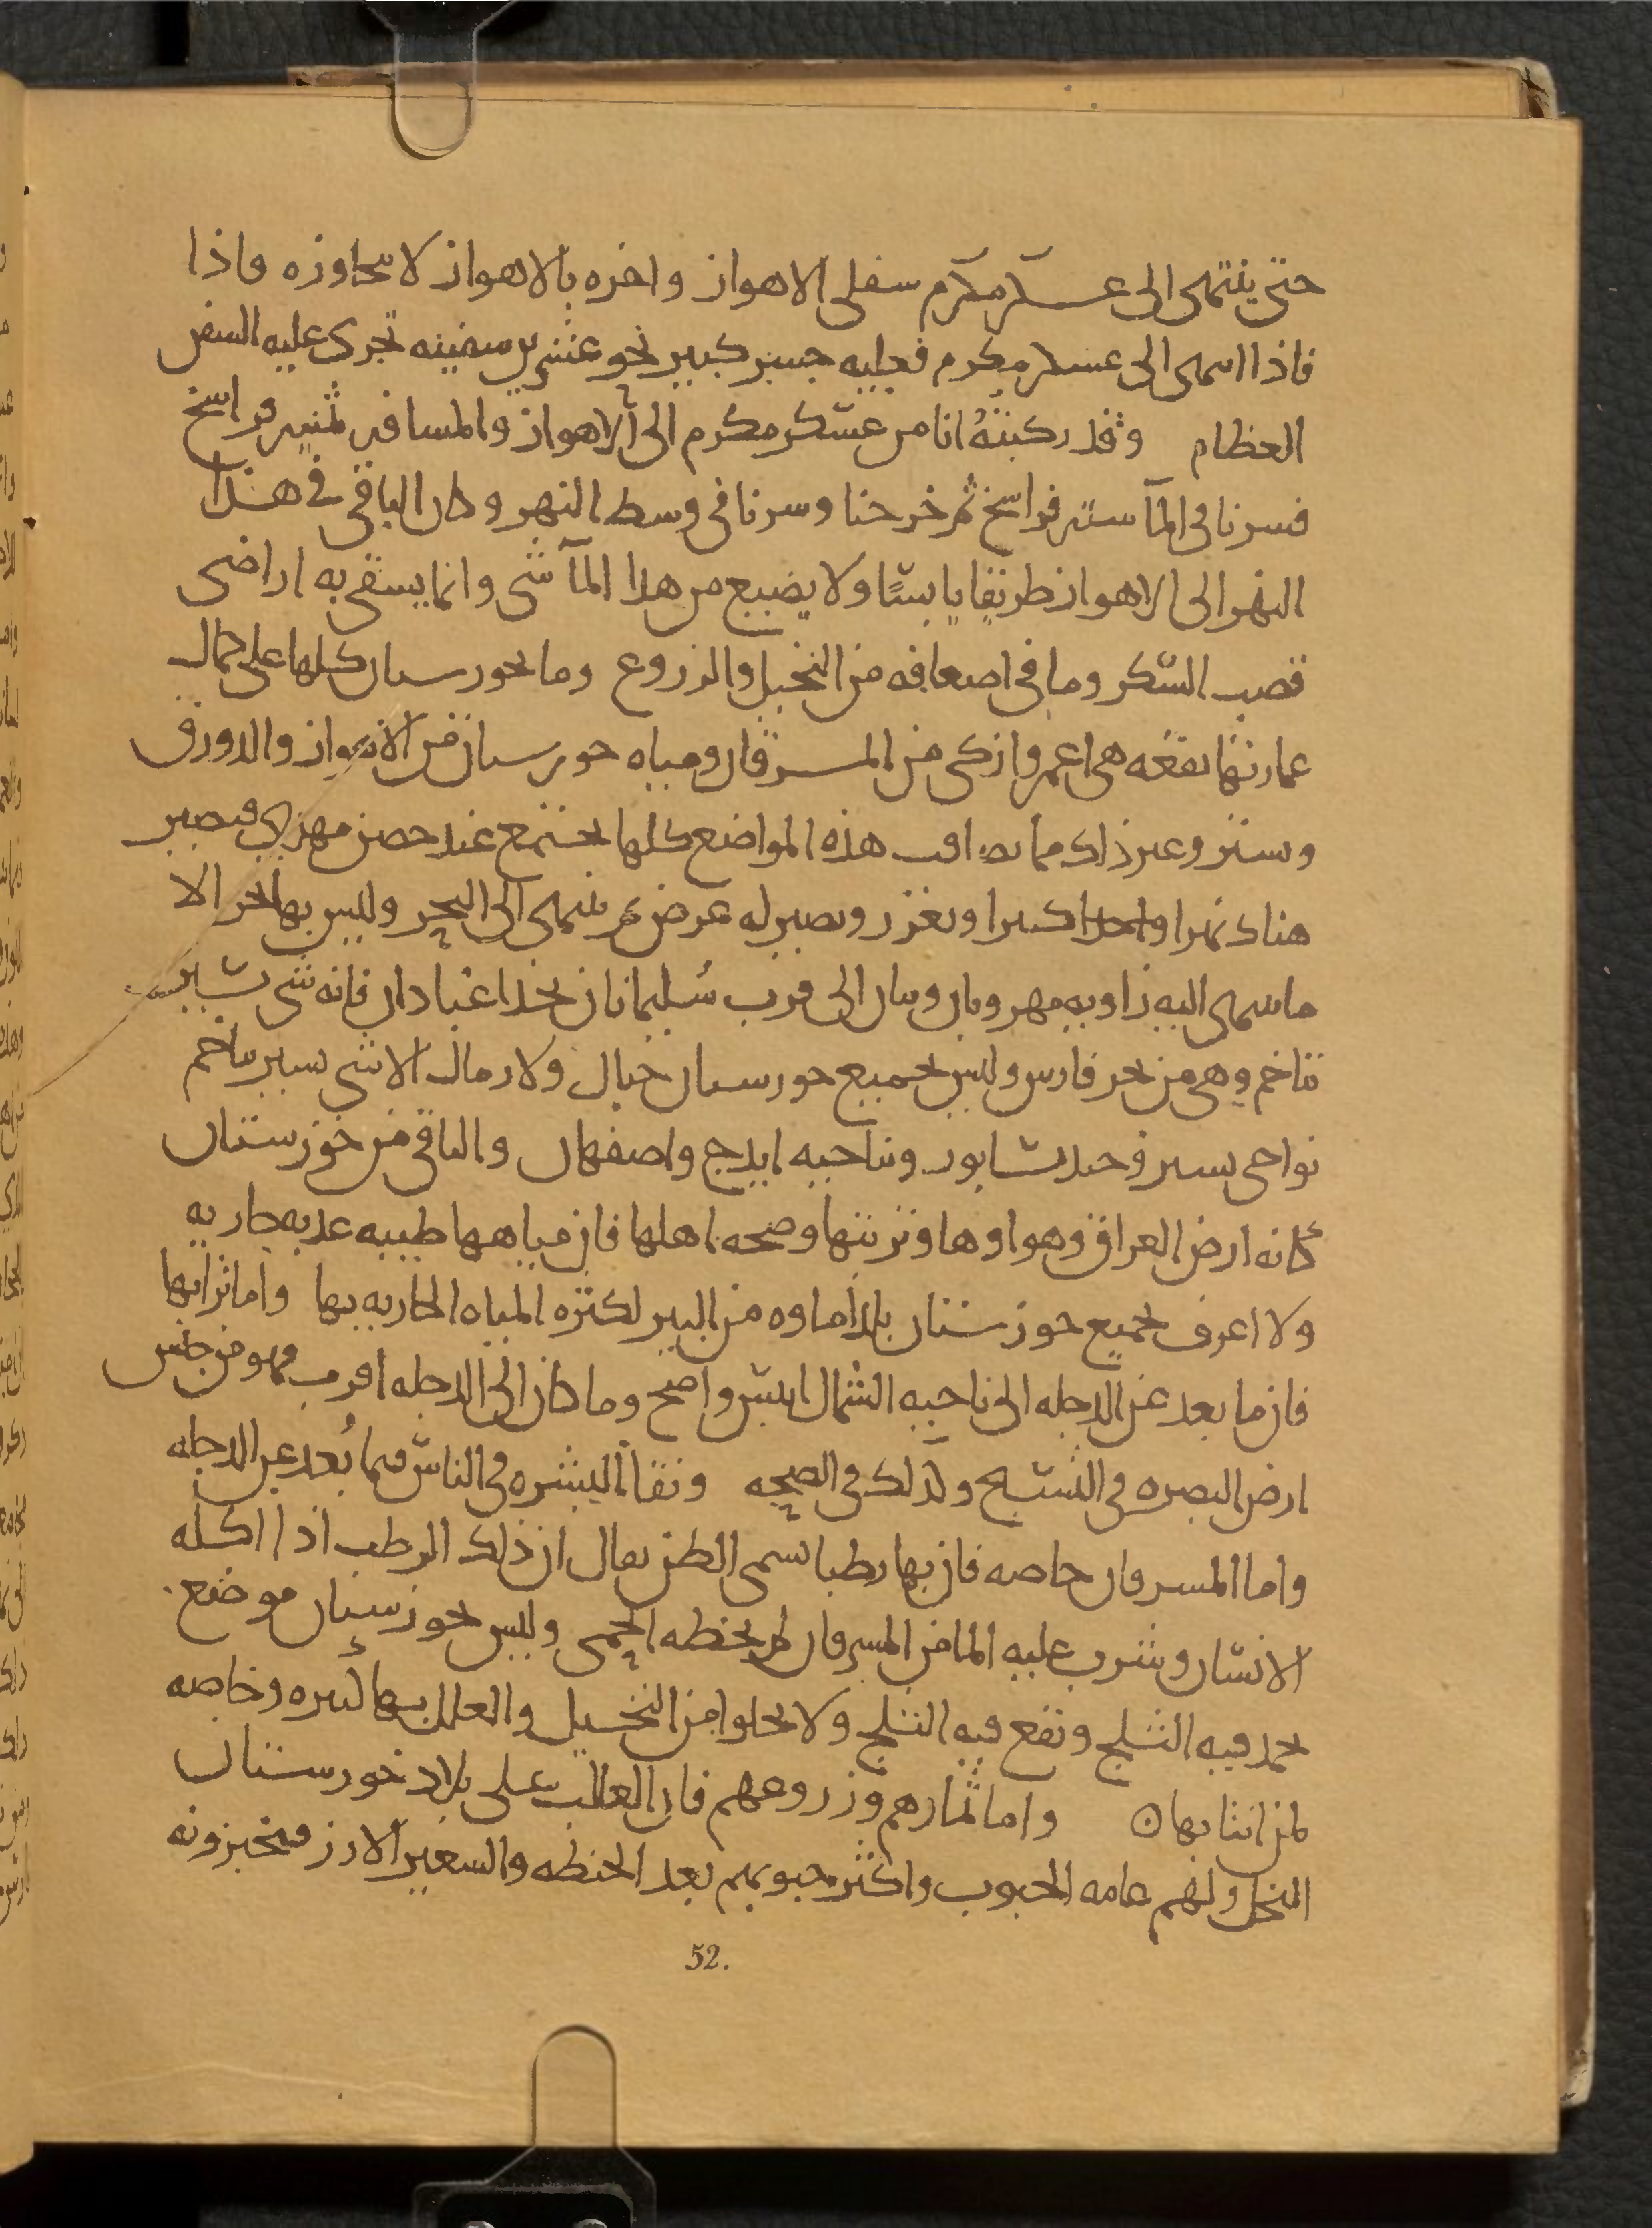 حتى ينتهى الى عسكر مكرم سفلى الاهواز واخره بالاهواز لا يتجاوزه واذا
فاذا انتهى الى عسكر مكرم فعليه جسر كبير نحو عشرين سفينه تجرى عليه السفن
العظام وقد ركبته انا من عسكر مكرم الى الاهواز والمسافه ثمنيه فراسخ
فسرنا فى المآ سته فراسخ ثم خرجنا وسرنا فى وسط النهر وكان الباقى فى هذا
النهر الى الاهواز طريقا يابسًا ولا يضيع من هذا المآ شى وانما يسقى به اراضى
قصب السكر وما فى اضعافه من النخيل والزروع وما بخورستان كلها على كمال
عمارتها بقعه هى اعمر وازكى من المسرقان ومياه خورستان من الاهواز والدورق
وتستر وغير ذلك مما يصاقب هذه المواضع كلها تجتمع عند حصن مهدى فيصير
هناك نهرا واحدا كبيرا ويغزر ويصير له عرض ثم ينتهى الى البحر وليس بها بحر الا
ما ينتهى اليه زاويه مهروبان وسان الى قرب سُليمانان بحذا عبادان فانه شى يسير
تتاخم وهى من بحر فارس وليس بجميع خورستان جبال ولا رمال الا شى يسير يتاخم
نواحى تستر وجندسابور وبناحيه ايدج واصفهان والباقى من خوزستان
كانه ارض العراق وهواوها وتربتها وصحه اهلها فان مياهها طيبه عذبه جاريه
ولا اعرف بجميع خوزستان بلدا ماوه من البير لكثره المياه الجاريه بها واما ترابها
فان ما بعد عن الدجله الى ناحيه الشمال ايبس واصح وما كان الى الدجله اقرب فهو من جنس
ارض البصره فى التسبخ وكذلك فى الصحه ونقآ البشره فى الناس فيما بُعد عن الدجله
واما المسرقان خاصه فان بها رطبا يسمى الطن يقال ان ذلك الرطب اذا اكله
الانسان وشرب عليه الما من المسرقان لم يخطه الحمى وليس بخوزستان موضع
يجمد فيه الثلج ويقع فيه الثلج ولا يخلوا من النخيل والعلل بها كثيره وخاصه
لمن انتابها ن واما ثمارهم وزروعهم فان الغالب على بلاد خورستان
النخل ولهم عامه الحبوب واكثر حبوبهم بعد الحنطه والشعير الارز فيخبزونه
52.